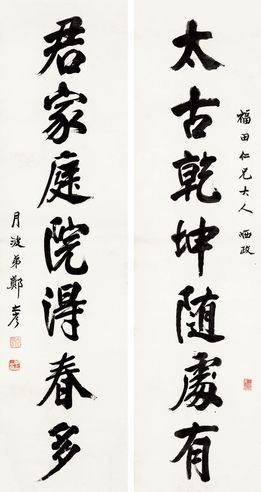 福田仁兄大人 哂政
太古乾坤随處有
君家庭院得春多
月波弟鄭